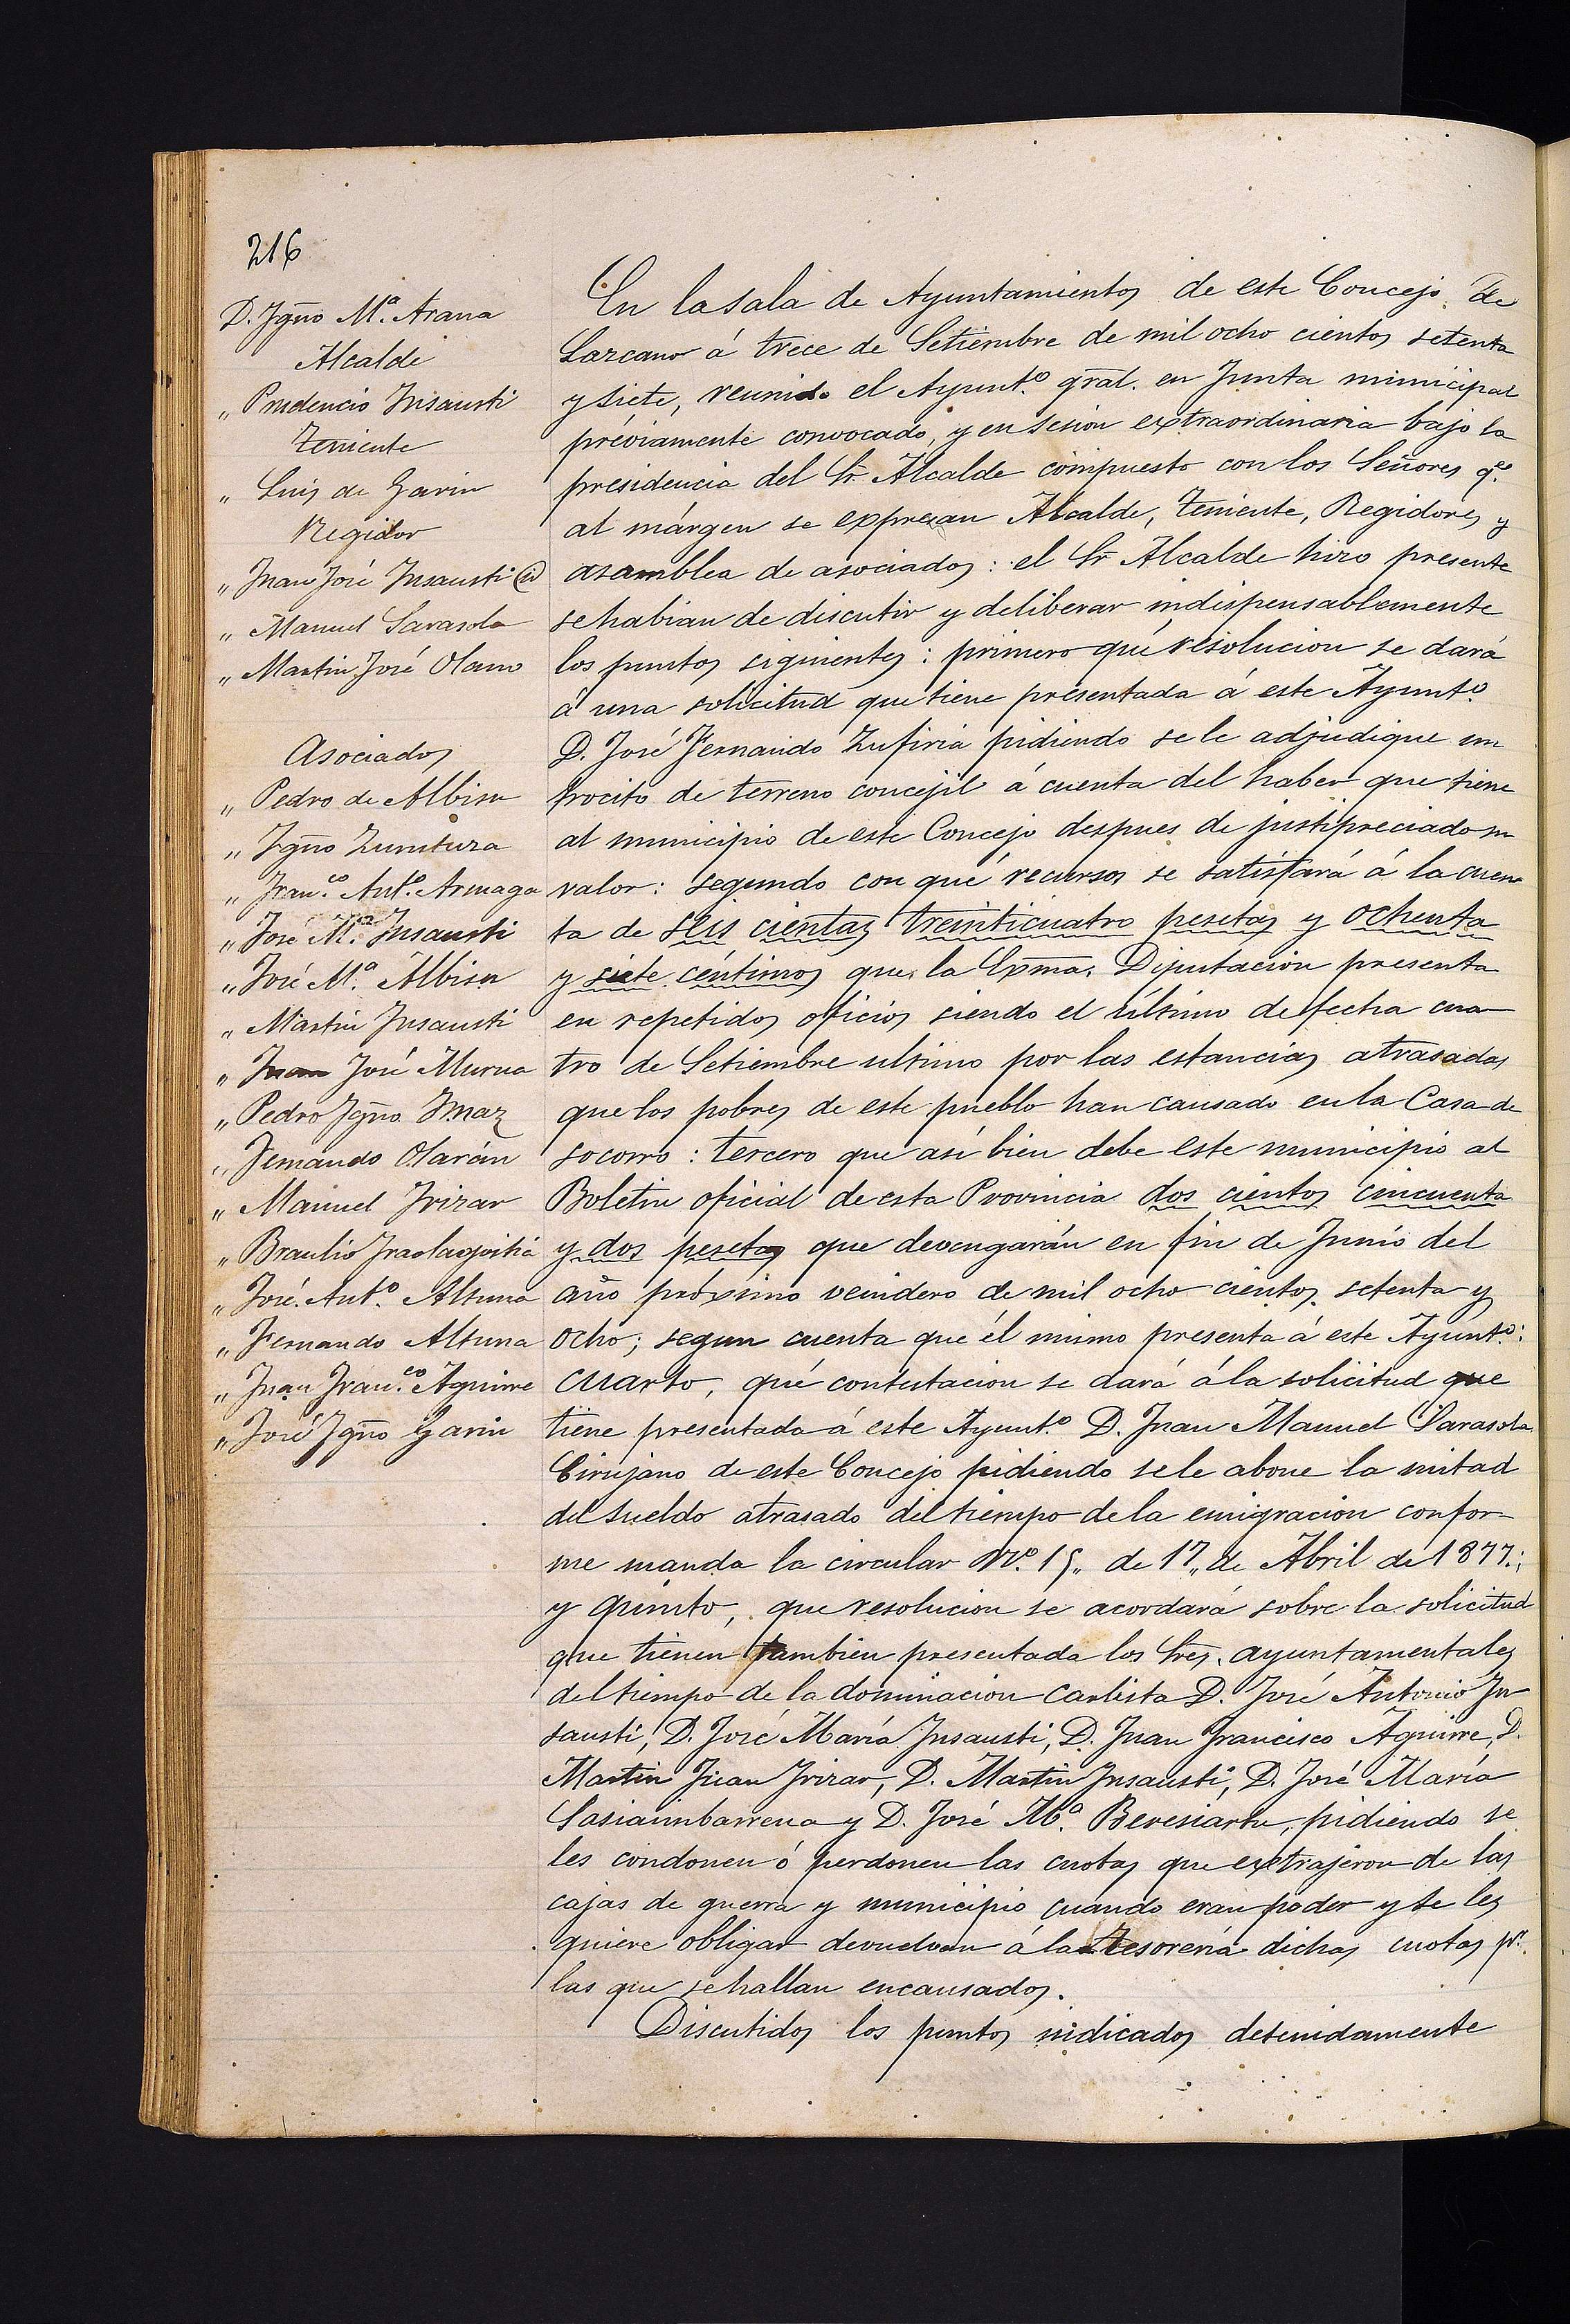 216
D. Ygno. M.ª Arana
Alcalde
„ Prudencio Insausti
Teniente
„ Luis de Garin
Regidor
„ Juan José Insausti id
„ Manuel Sarasola
„ Martin José Olano
Asociados
„ Pedro de Albisu
„ Ygno. Zunzura
„ Fran.co Ant.º Armaga
„ José M.ª Insausti
„ José M.ª Albisu
„ Martin Insausti
„ Juan José Murua
„ Pedro Ygno. Imaz
„ Fernando Olarán
„ Manuel Irizar
„ Braulio Iraolagoitia
„ José Ant.º Altuna
„ Fernando Altuna
„ Juan Fran.co Aguirre
„ José Ygno. Garin
En la sala de Ayuntamientos de este Concejo de
Lazcano á trece de Setiembre de mil ocho cientos setenta
y siete, reunido el Ayunt.º gral. en Junta municipal
préviamente convocado, y en sesion extraordinaria bajo la
presidencia del Sr. Alcalde compuesto con los Señores q.e
al márgen se expresan Alcalde, Teniente, Regidores y
asamblea de asociados: el Sr. Alcalde hizo presente
se habian de discutir y deliberar indispensablemente
los puntos siguientes: primero qué resolucion se dará
á una solicitud que tiene presentada á este Ayunt.º
D. José Fernando Zufiria pidiendo se le adjudique un
trocito de terreno concejil á cuenta del haber que tiene
al municipio de este Concejo despues de justipreciado su
valor: segundo con qué recursos se satisfará á la cuen-
ta de seis cientas treinticuatro pesetas y ochenta
y siete céntimos que la Exma. Diputacion presenta
en repetidos oficios siendo el último de fecha cua-
tro de Setiembre ultimo por las estancias atrasadas
que los pobres de este pueblo han causado en la Casa de
socorro: tercero que así bien debe este municipio al
Boletin oficial de esta Provincia dos cientos cincuenta
y dos pesetas que devengarán en fin de Junio del
año próximo venidero de mil ocho cientos setenta y
ocho; segun cuenta que él mismo presenta á este Ayunt.º:
cuarto, qué contestacion se dará á la solicitud que
tiene presentada á este Ayunt.º D. Juan Manuel Sarasola
Cirujano de este Concejo pidiendo se le abone la mitad
del sueldo atrasado del tiempo de la emigracion confor-
me manda la circular N.º 15„ de 17„ de Abril de 1877.;
y quinto, que resolucion se acordará sobre la solicitud
que tienen tambien presentada los Sres. ayuntamentales
del tiempo de la dominacion carlista D. José Antonio In
sausti, D. José María Insausti, D. Juan Francisco Aguirre, D.
Martin Juan Irizar, D. Martin Insausti, D. José María
Sasiainbarrena y D. José M.ª Beresiartu, pidiendo se
les condonen ó perdonen las cuotas que extrajeron de las
cajas de guerra y municipio cuando eran poder y se les
quiere obligar devuelvan á la Tesorería dichas cuotas pr.
las que se hallan encausados.
Discutidos los puntos indicados detenidamente